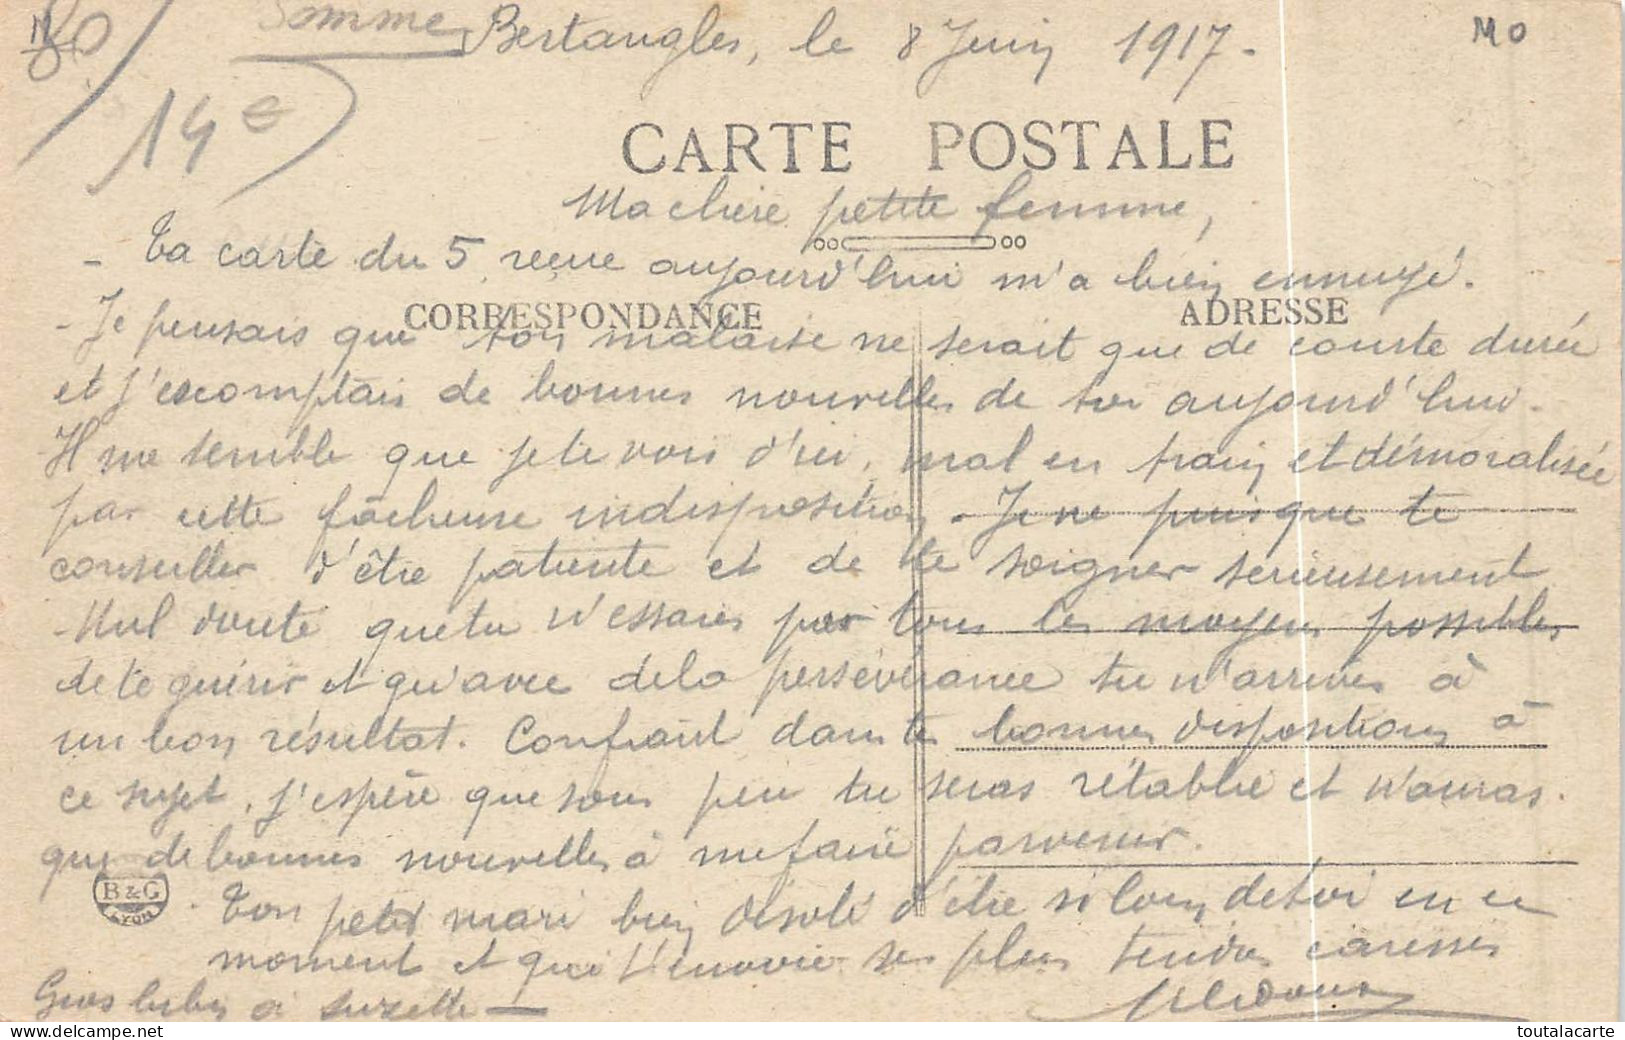 80
Somme
14e
Bertangles, le 8 Juin 1917.
MO
CARTE POSTALE
Ma chère petite femme,
- Ta carte du 5 reçue aujourd'hui m'a bien ennuyé.
CORRESPONDANCE
ADRESSE
- Je pensais que ton malaise ne serait que de courte durée
et j'escomptais de bonnes nouvelles de toi aujourd'hui.
Il me semble que je te vois d'ici, mal en train et démoralisée
par cette fâcheuse indisposition. Je ne puis que te
conseiller d'être patiente et de te soigner sérieusement
- Nul doute que tu n'essaies par tous les moyens possibles
de te guérir et qu'avec de la persévérance tu n'arrives à
un bon résultat. Confiant dans tes bonnes dispositions à
ce sujet, j'espère que sous peu tu seras rétablie et n'auras
que de bonnes nouvelles à me faire parvenir.
B & G
LYON
Ton petit mari bien désolé d'être si loin de toi en ce
moment et qui t'envoie ses plus tendres caresses
Gros bibis à Suzette —
www.toutalacarte.com
toutalacarte